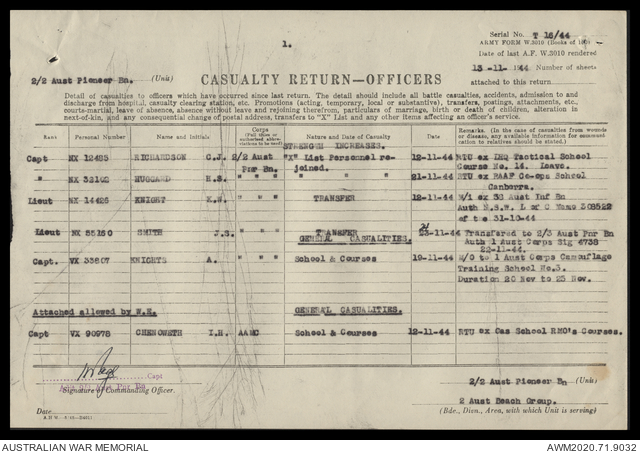 1.
Serial No. T 16/44
ARMY FORM W.3010 (Books of 100)
Date of last A.F. W.3010 rendered
13-11-1944 Number of sheets
attached to this return
2/2 Aust Pioneer Bn. (Unit)
CASUALTY RETURN—OFFICERS
Detail of casualties to officers which have occurred since last return. The detail should include all battle casualties, accidents, admission to and
discharge from hospital, casualty clearing station, etc. Promotions (acting, temporary, local or substantive), transfers, postings, attachments, etc.,
courts-martial, leave of absence, absence without leave and rejoining therefrom, particulars of marriage, birth or death of children, alteration in
next-of-kin, and any consequential change of postal address, transfers to "X" List and any other items affecting an officer's service.
Rank Personal Number Name and Initials Corps (Full titles or authorised abbreviations to be used) Nature and Date of Casualty Date Remarks. (In the case of casualties from wounds or disease, any available information for communication to relatives should be stated.)
STRENGTH INCREASES.
Capt NX 12485 RICHARDSON C.J. 2/2 Aust "X" List Personnel re- 12-11-44 RTU ex LHQ Tactical School
Pnr Bn. joined. Course No. 14.
" NX 32102 H.S. " " " " " " 21-11-44 RTU ex RAAF Co-ops School
Canberra.
Lieut NX 14426 KNIGHT K.W. " " " TRANSFER 12-11-44 M/i ex 36 Aust Inf Bn
Auth N.S.W. L of C Memo 308522
of the 31-10-44
Lieut NX 55160 SMITH J.S. " " " TRANSFER 23-11-44 Transferred to 2/3 Aust Pnr Bn
GENERAL CASUALITIES. Auth 1 Aust Corps Sig 4738
22-11-44.
Capt. VX 33807 KNIGHTS A. " " " School & Courses 19-11-44 M/O to 1 Aust Corps Camouflage
Training School No.3.
Duration 20 Nov to 25 Nov.
Attached allowed by W.E. GENERAL CASUALITIES.
Capt VX 90978 CHENOWETH I.H. AAMC School & Courses 12-11-44 RTU ex Gas School RMO's Courses.
Capt
Signature of Commanding Officer.
Date
2/2 Aust Pioneer Bn (Unit)
2 Aust Beach Group.
(Bde., Divn., Area, with which Unit is serving)
AUSTRALIAN WAR MEMORIAL
AWM2020.71.9032